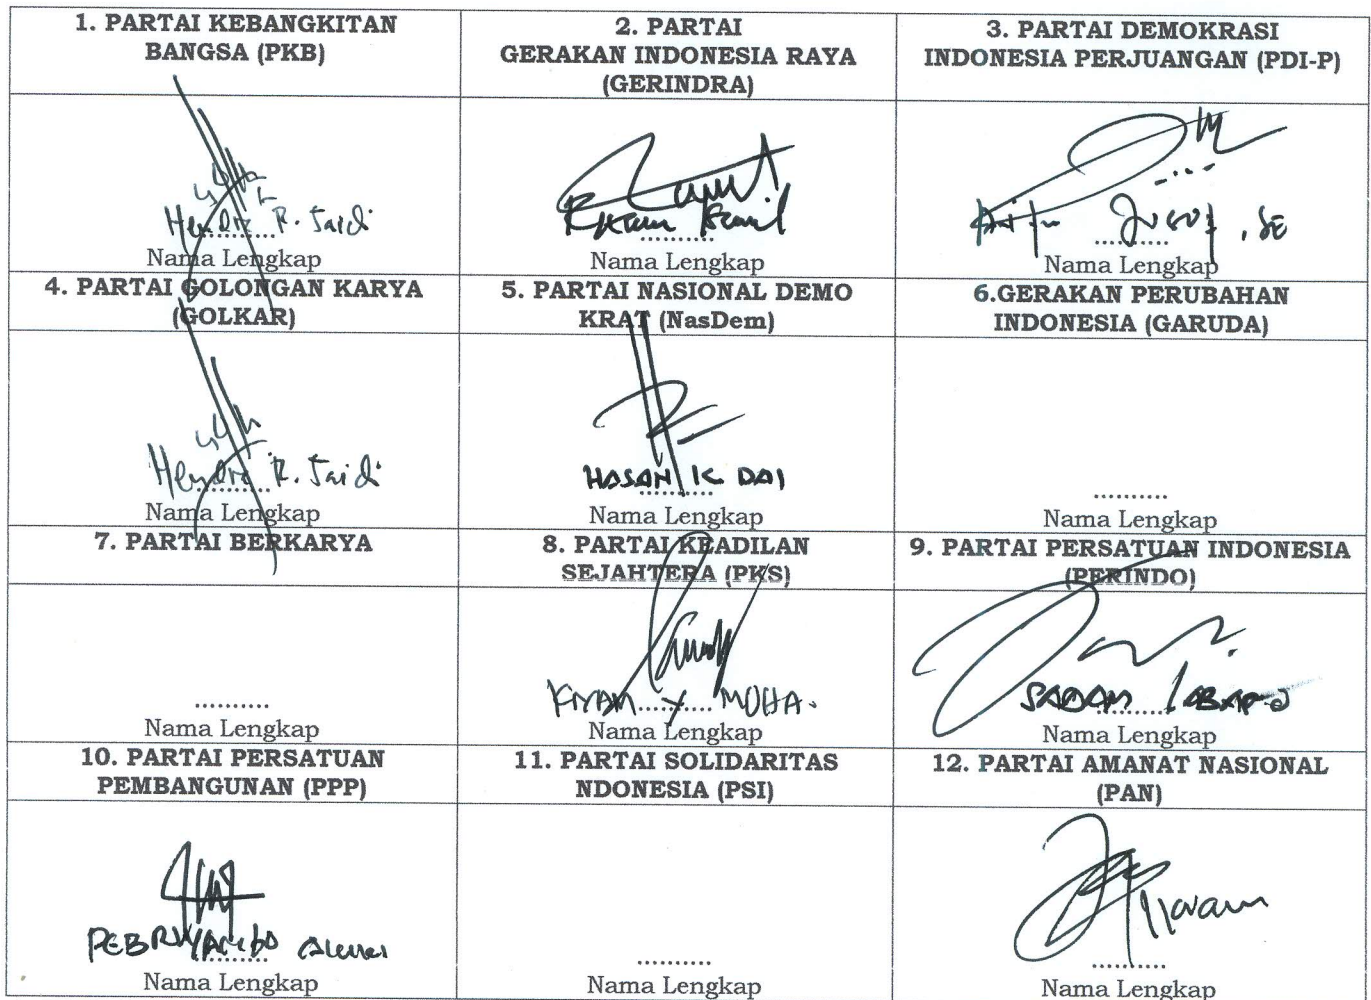 1. PARTAI KEBANGKITAN
BANGSA (PKB)
2. PARTAI
GERAKAN INDONESIA RAYA
(GERINDRA)
3. PARTAI DEMOKRASI
INDONESIA PERJUANGAN (PDI-P)
Hendra R. Saidi
..........
Nama Lengkap
..........
Nama Lengkap
, SE
..........
Nama Lengkap
4. PARTAI GOLONGAN KARYA
(GOLKAR)
5. PARTAI NASIONAL DEMO
KRAT (NasDem)
6.GERAKAN PERUBAHAN
INDONESIA (GARUDA)
Hendra R. Saidi
..........
Nama Lengkap
HASAN K DAI
..........
Nama Lengkap
..........
Nama Lengkap
7. PARTAI BERKARYA
8. PARTAI KEADILAN
SEJAHTERA (PKS)
9. PARTAI PERSATUAN INDONESIA
(PERINDO)
..........
Nama Lengkap
MOHA.
..........
Nama Lengkap
SADAM
..........
Nama Lengkap
10. PARTAI PERSATUAN
PEMBANGUNAN (PPP)
11. PARTAI SOLIDARITAS
NDONESIA (PSI)
12. PARTAI AMANAT NASIONAL
(PAN)
..........
Nama Lengkap
..........
Nama Lengkap
..........
Nama Lengkap